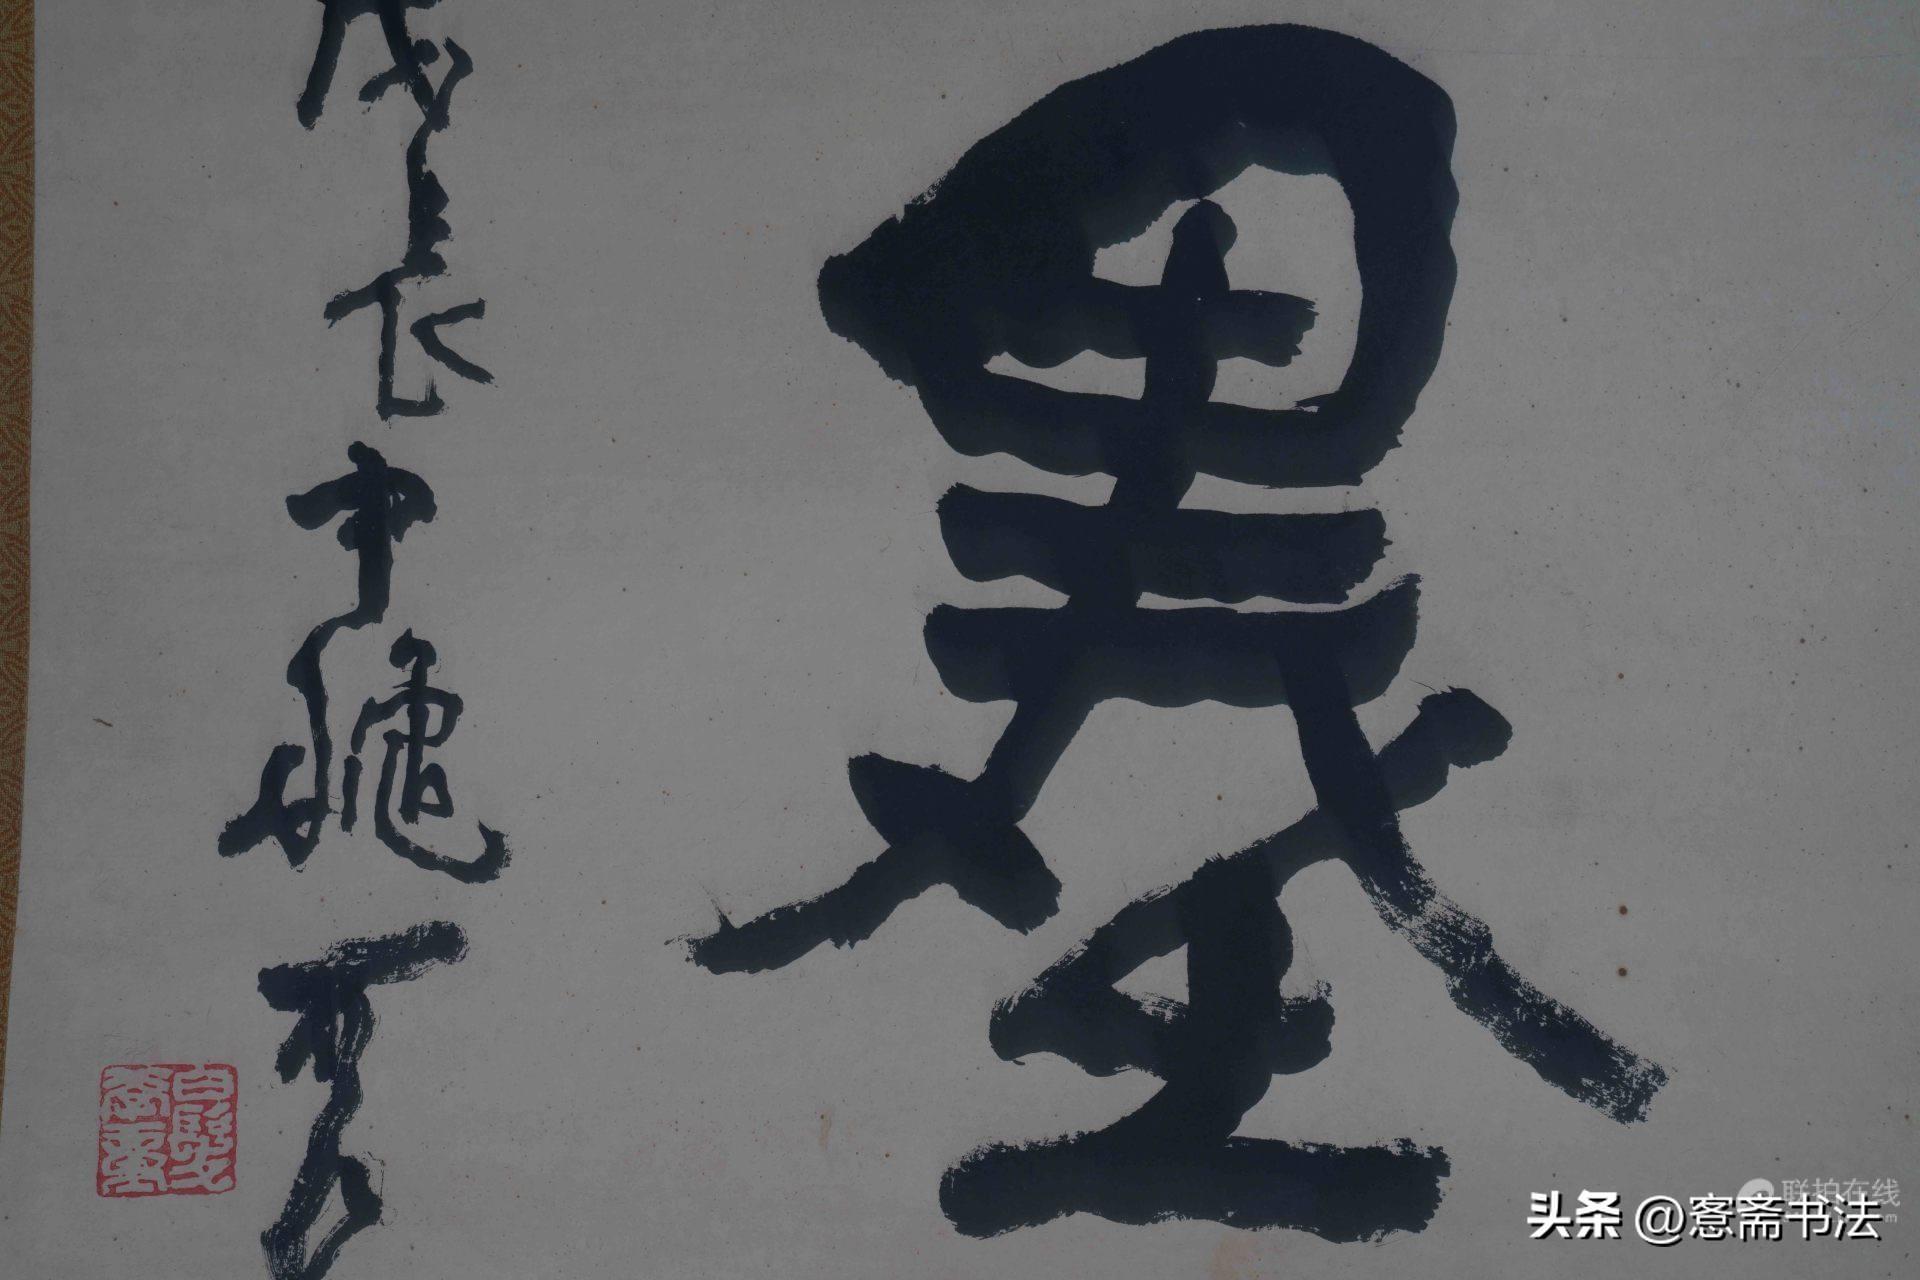 墨
戊辰中龝
联拍在线
头条 @愙斋书法